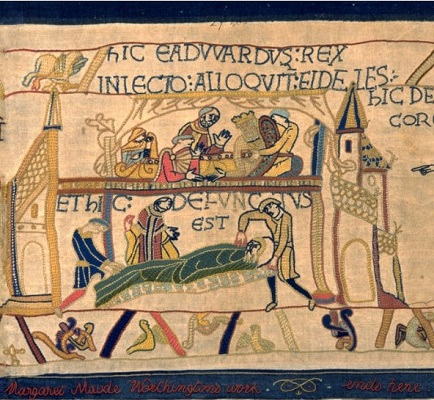 hIC EADVVARDVS:REX
INLECTO:ALLOQVIT:FIDELES:
hIC DE
CORO
ET hIC: DEFVNCTVS
EST
Margaret Maude Worthingtons work ends here